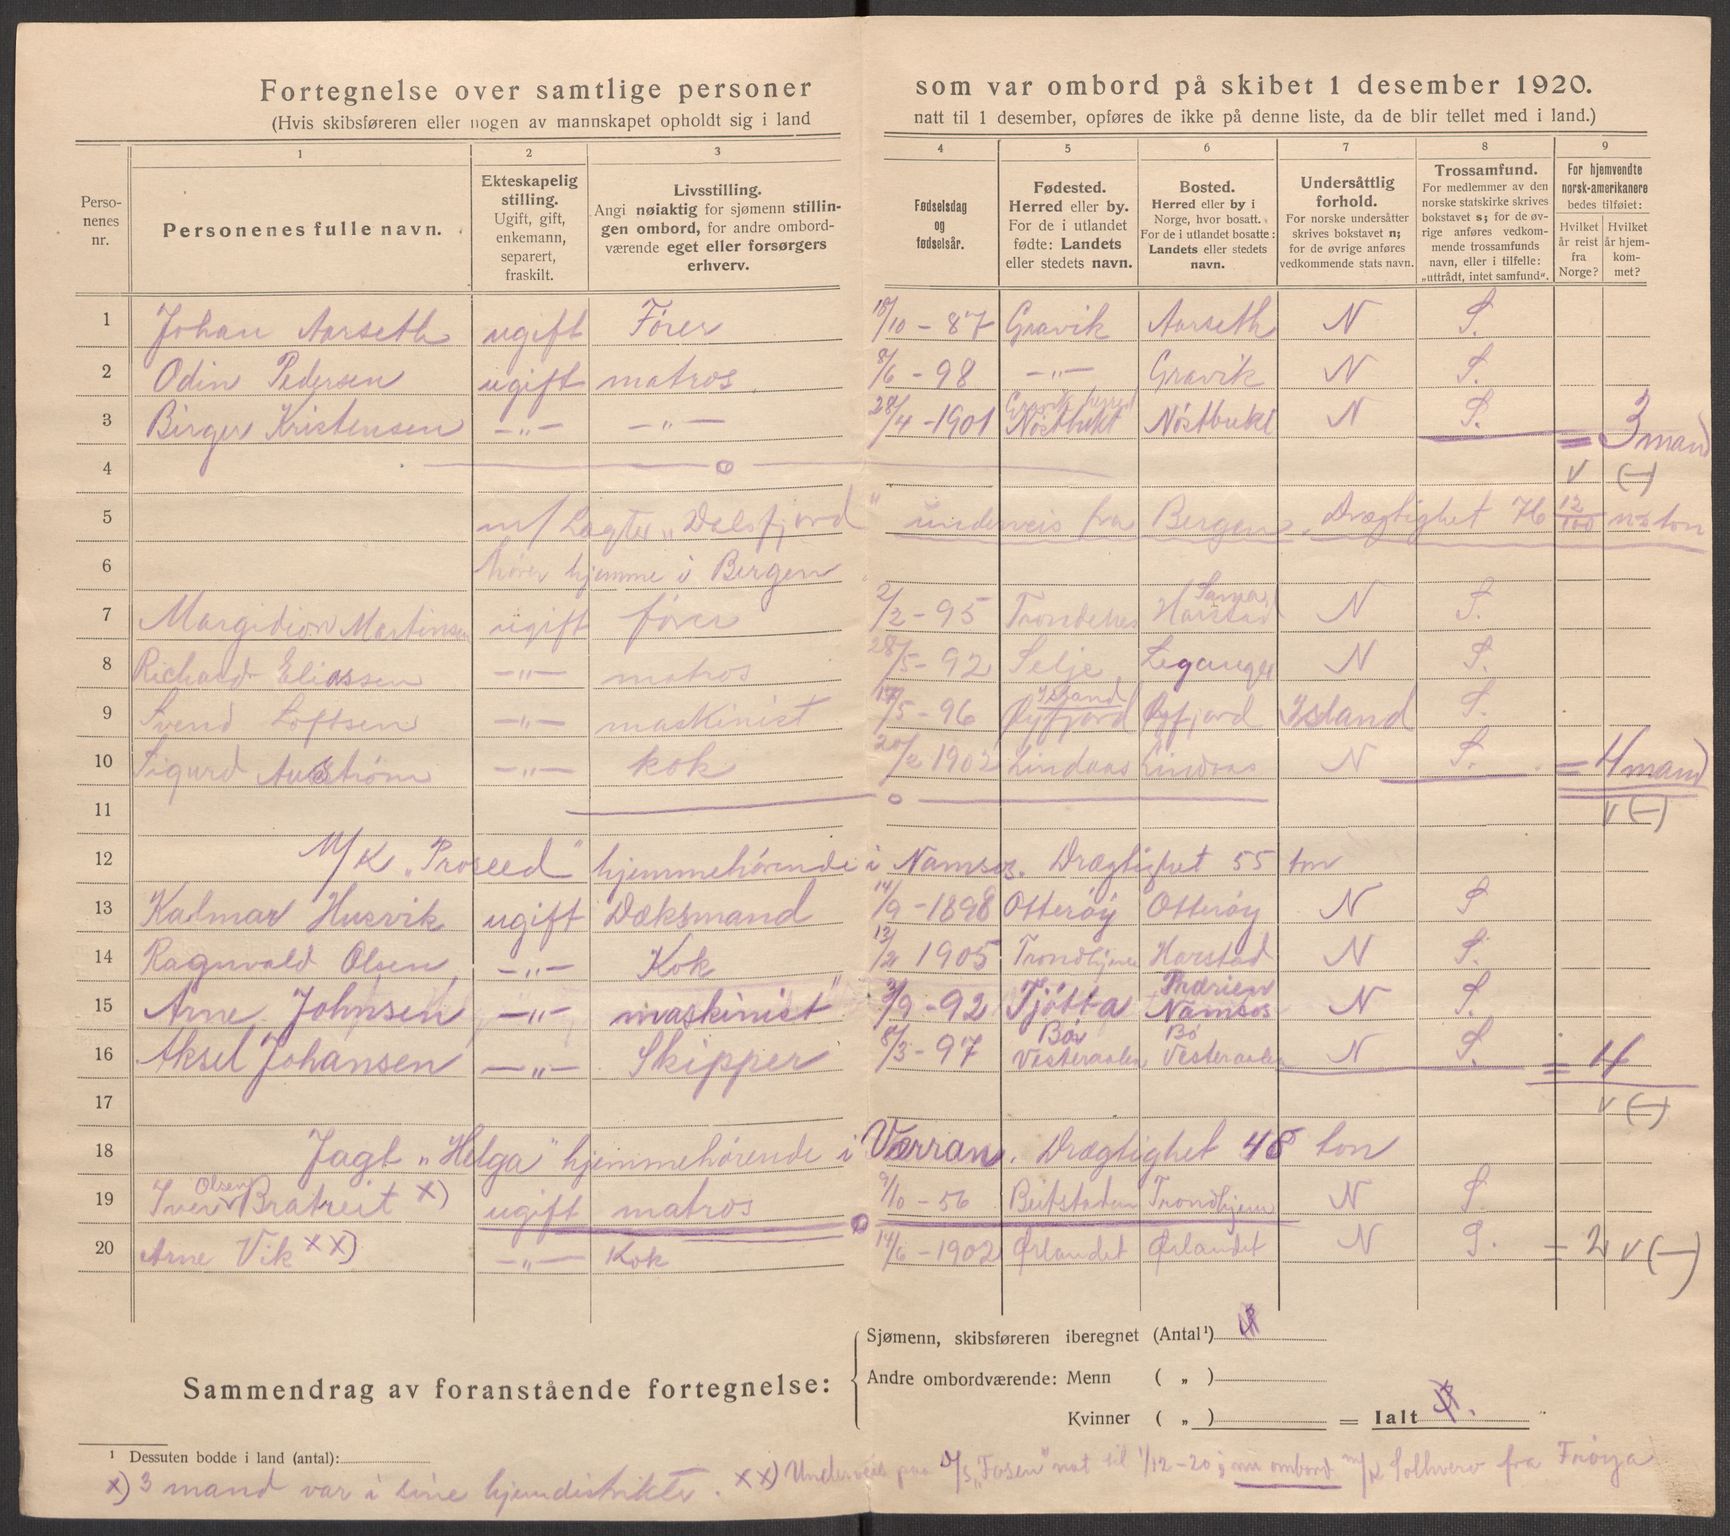 Fortegnelse over samtlige personer som var ombord på skibet 1 desember 1920.
(Hvis skibsføreren eller nogen av mannskapet opholdt sig i land natt til 1 desember, opføres de ikke på denne liste, da de blir tellet med i land.)
1 2 3 4 5 6 7 8 9
Personenes nr.
Personenes fulle navn.
Ekteskapelig stilling. Ugift, gift, enkemann, separert, fraskilt.
Livsstilling. Angi nøiaktig for sjømenn stillingen ombord, for andre ombordværende eget eller forsørgers erhverv.
Fødselsdag og fødselsår.
Fødested. Herred eller by. For de i utlandet fødte: Landets eller stedets navn.
Bosted. Herred eller by i Norge, hvor bosatt. For de i utlandet bosatte: Landets eller stedets navn.
Undersåttlig forhold. For norske undersåtter skrives bokstavet n; for de øvrige anføres vedkommende stats navn.
Trossamfund. For medlemmer av den norske statskirke skrives bokstavet s; for de øvrige anføres vedkommende trossamfunds navn, eller i tilfelle: „uttrådt, intet samfund“.
For hjemvendte norsk-amerikanere bedes tilføiet: Hvilket år reist fra Norge? Hvilket år hjemkommet?
1 Johan Aarseth ugift Fører 18/10 - 87 Gravik Aarseth N S.
2 Odin Pedersen ugift matros 8/6 - 98 -„- Gravik N S.
3 Birger Kristensen -„- -„- 28/4 - 1901 Gravik herred Nöstbukt Nöstbukt N S. = 3 mand
4 v (—)
5 m/ Lagter „Dalsfjord“ underveis fra Bergen, Drægtighet 76 12/100 ns ton
6 hører hjemme i Bergen
7 Margidion Martinsen ugift fører 2/2 - 95 Trondenes Harstad N S.
8 Richard Eliassen -„- matros 28/5 - 92 Selje Leganger N S.
9 Svend Loftsen -„- maskinist 17/5 - 96 Island Øyfjord Øyfjord Island S.
10 Sigurd -„- kok 20/2 1902 Lindaas Lindaas N S. = 4 mand
11 v (—)
12 M/K „Proseed“ hjemmehörende i Namsos. Drægtighet 55 ton
13 Kalmar Husvik ugift Dæksmand 14/9 - 1898 Otteröy Otteröy N S
14 Ragnvald Olsen -„- Kok 13/2 1905 Trondhjem Harstad N S.
15 Arne Johnsen -„- maskinist 3/9 - 92 Tjötta Namsos N S.
16 Aksel Johansen -„- Skipper 8/3 - 97 Bö Vesteraalen Bö Vesteraalen N S. = 4
17 v (—)
18 Jagt „Helga“ hjemmehörende i Værran. Drægtighet 48 ton
19 Iver Olsen Bratreit x) ugift matros 9/10 - 56 Beitstaden Trondhjem N S
20 Arne Vik xx) -„- Kok 14/6 - 1902 Ørlandet Ørlandet N S. = 2 v (—)
Sammendrag av foranstående fortegnelse:
Sjømenn, skibsføreren iberegnet (Antal¹)
Andre ombordværende: Menn ( „ )
Kvinner ( „ ) = Ialt
¹ Dessuten bodde i land (antal):
x) 3 mand var i sine hjemdistrikter. xx) Underveis paa D/S „Fosen“ nat til 1/12-20; nu ombord m/k Solhverv fra Fröya